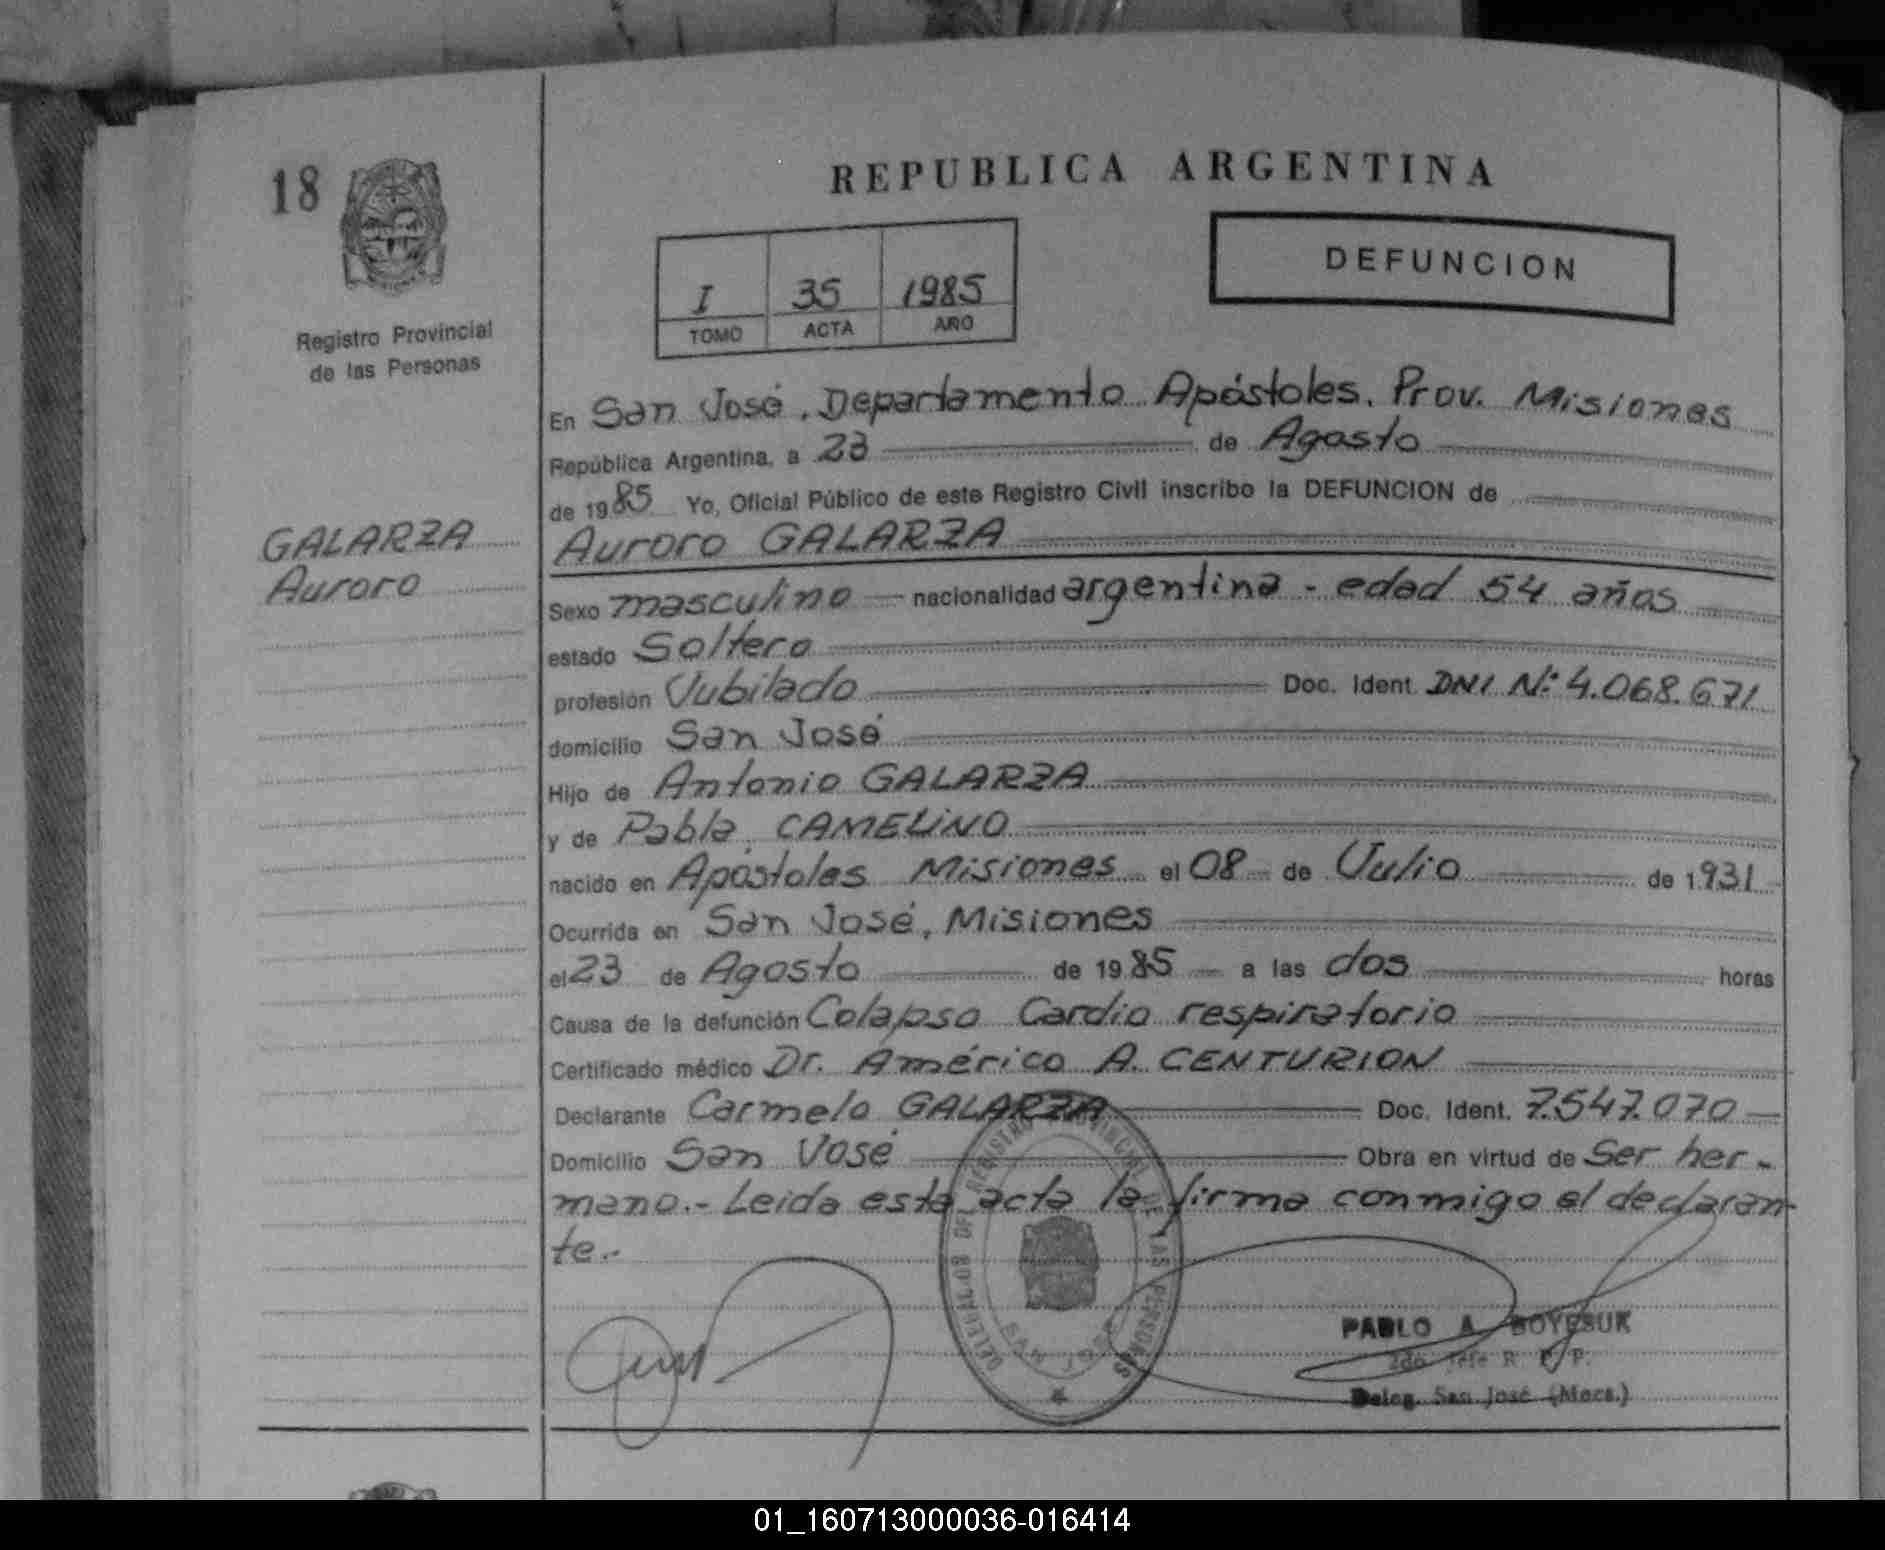 18
Registro Provincial
de las Personas
GALARZA
Auroro
REPUBLICA ARGENTINA
I 35 1985
TOMO ACTA AÑO
DEFUNCION
En San José, Departamento Apóstoles. Prov. Misiones
República Argentina, a 23 de Agosto
de 1985 Yo, Oficial Público de este Registro Civil inscribo la DEFUNCION de
Auroro GALARZA
Sexo masculino nacionalidad argentina - edad 54 años
estado Soltero
profesión Jubilado Doc. Ident. DNI Nº 4.068.671
domicilio San José
Hijo de Antonio GALARZA
y de Pabla CAMELINO
nacido en Apóstoles Misiones el 08 de Julio de 1931
Ocurrida en San José, Misiones
el 23 de Agosto de 1985 a las dos horas
Causa de la defunción Colapso Cardio respiratorio
Certificado médico Dr. Américo A. CENTURION
Declarante Carmelo GALARZA Doc. Ident. 7.547.070
Domicilio San José Obra en virtud de Ser her-
mano.- Leida esta acta la firma conmigo el declaran-
te.-
REGISTRO PROVINCIAL DE LAS PERSONAS
SAN JOSE
PABLO A. BOYESUK
2do Jefe R. P. P.
Deleg. San José (Mnes.)
01_160713000036-016414